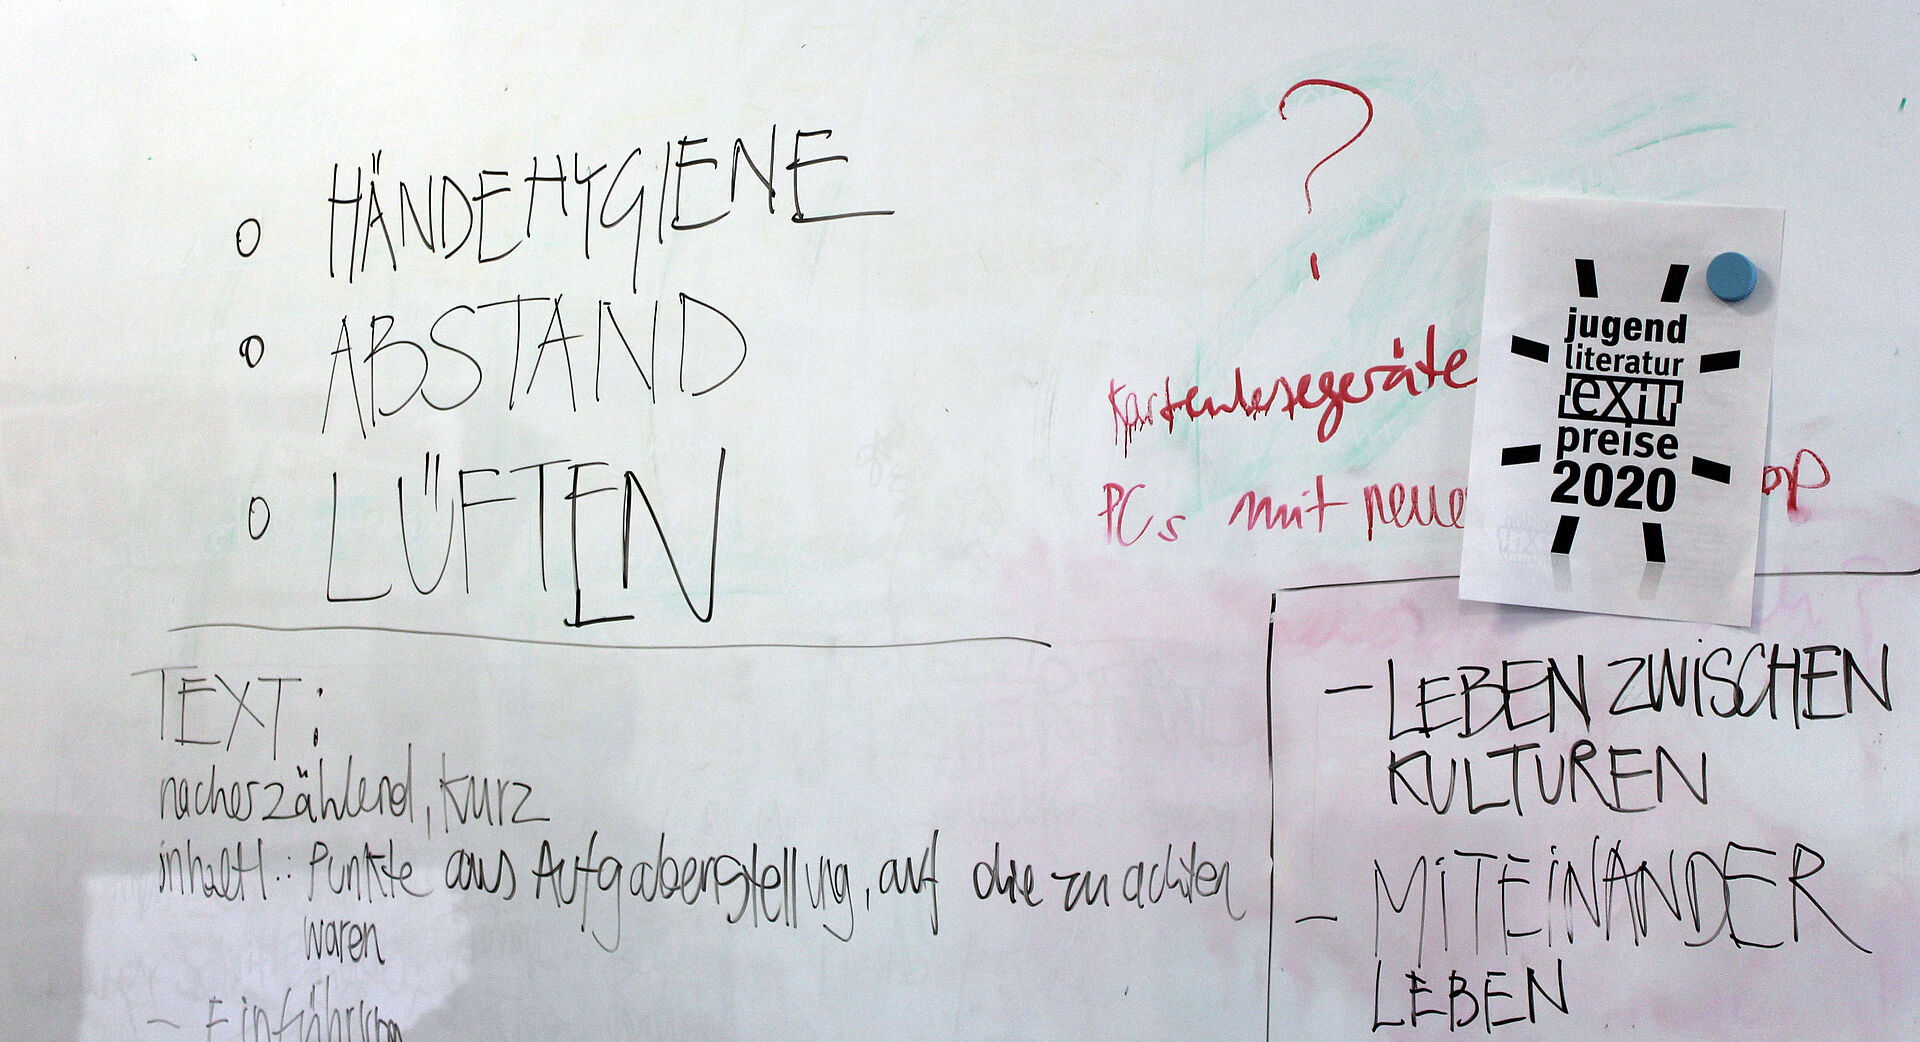 o HÄNDEHYGIENE
o ABSTAND
o LÜFTEN
TEXT:
nacherzählend, kurz
inhaltl.: Punkte aus Aufgabenstellung, auf die zu achten
waren
– Einführung
?
Kartenlesegeräte
PCs mit neue
op
jugend
literatur
exil
preise
2020
– LEBEN ZWISCHEN
KULTUREN
– MITEINANDER
LEBEN